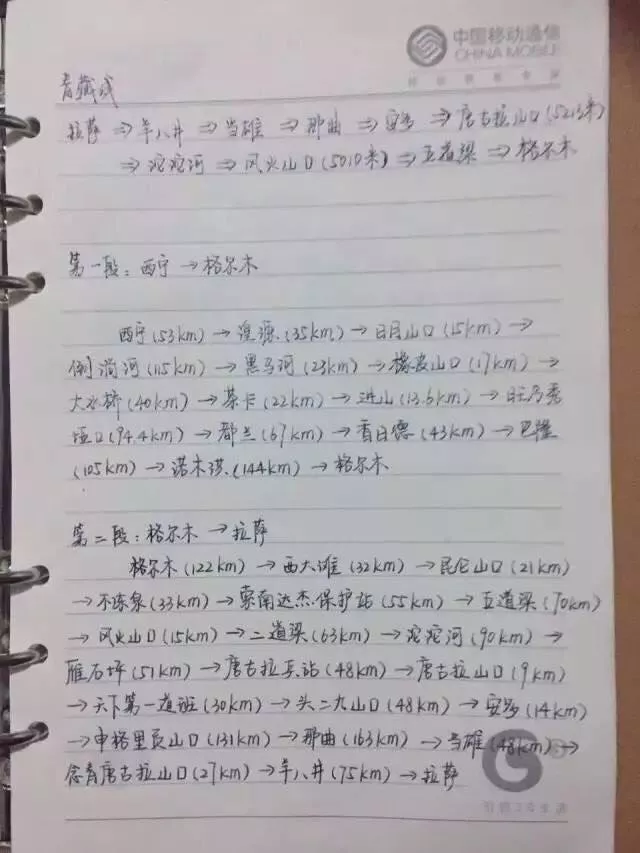 中国移动通信
CHINA MOBILE
青藏线
拉萨 ⇒ 羊八井 ⇒ 当雄 ⇒ 那曲 ⇒ 安多 ⇒ 唐古拉山口(5213米)
⇒ 沱沱河 ⇒ 风火山口(5010米) ⇒ 五道梁 ⇒ 格尔木
第一段: 西宁 → 格尔木
西宁(53km) → 湟源(35km) → 日月山口(15km) →
倒淌河(115km) → 黑马河(23km) → 橡皮山口(17km) →
大水桥(40km) → 茶卡(22km) → 进山(13.6km) → 旺尕秀
垭口(94.4km) → 都兰(67km) → 香日德(43km) → 巴隆
(105km) → 诺木洪(144km) → 格尔木
第二段: 格尔木 → 拉萨
格尔木(122km) → 西大滩(32km) → 昆仑山口(21km)
→ 不冻泉(33km) → 索南达杰保护站(55km) → 五道梁(70km)
→ 风火山口(15km) → 二道梁(63km) → 沱沱河(90km) →
雁石坪(51km) → 唐古拉兵站(48km) → 唐古拉山口(9km)
→ 天下第一道班(30km) → 头二九山口(48km) → 安多(14km)
→ 申格里贡山口(131km) → 那曲(163km) → 当雄(48km) →
念青唐古拉山口(27km) → 羊八井(75km) → 拉萨
引领3G生活